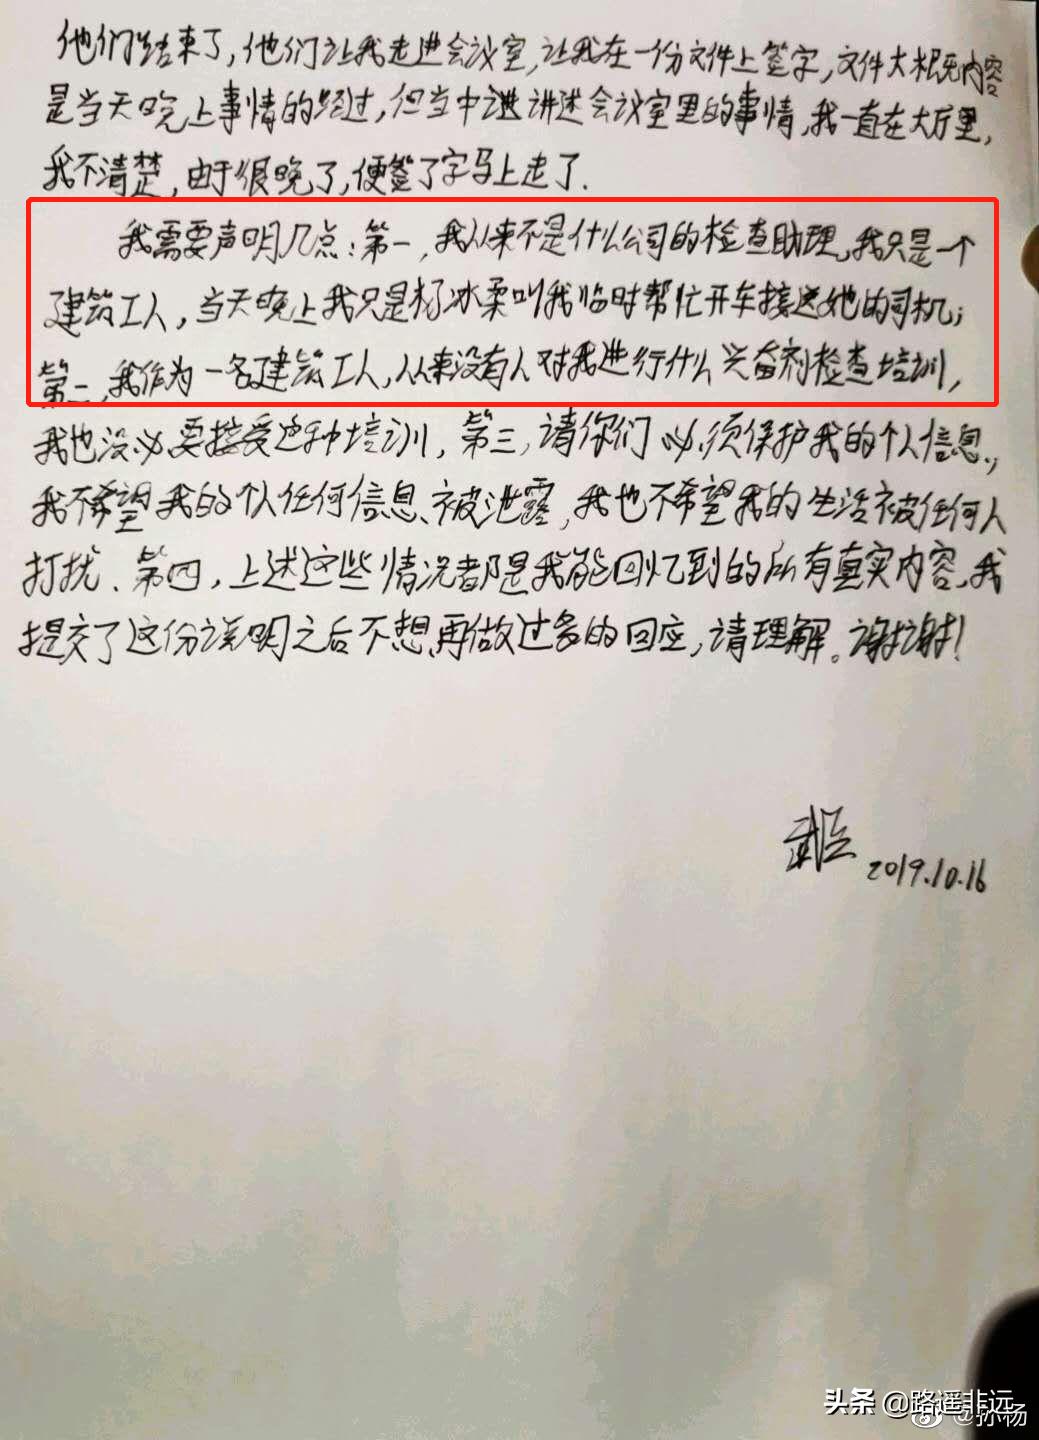 他们结束了,他们让我走进会议室,让我在一份文件上签字,文件大概内容
是当天晚上事情的经过,但当中讲述会议室里的事情,我一直在大厅里,
我不清楚,由于很晚了,便签了字马上走了.
我需要声明几点:第一,我从来不是什么公司的检查助理,我只是一个
建筑工人,当天晚上我只是杨冰柔叫我临时帮忙开车接送她的司机;
第二,我作为一名建筑工人,从来没有人对我进行什么兴奋剂检查培训,
我也没必要接受这种培训,第三,请你们必须保护我的个人信息,
我不希望我的个人任何信息被泄露,我也不希望我的生活被任何人
打扰.第四,上述这些情况都是我能回忆到的所有真实内容,我
提交了这份说明之后不想再做过多的回应,请理解。谢谢!
2019.10.16
头条 @路遥非远
@孙杨